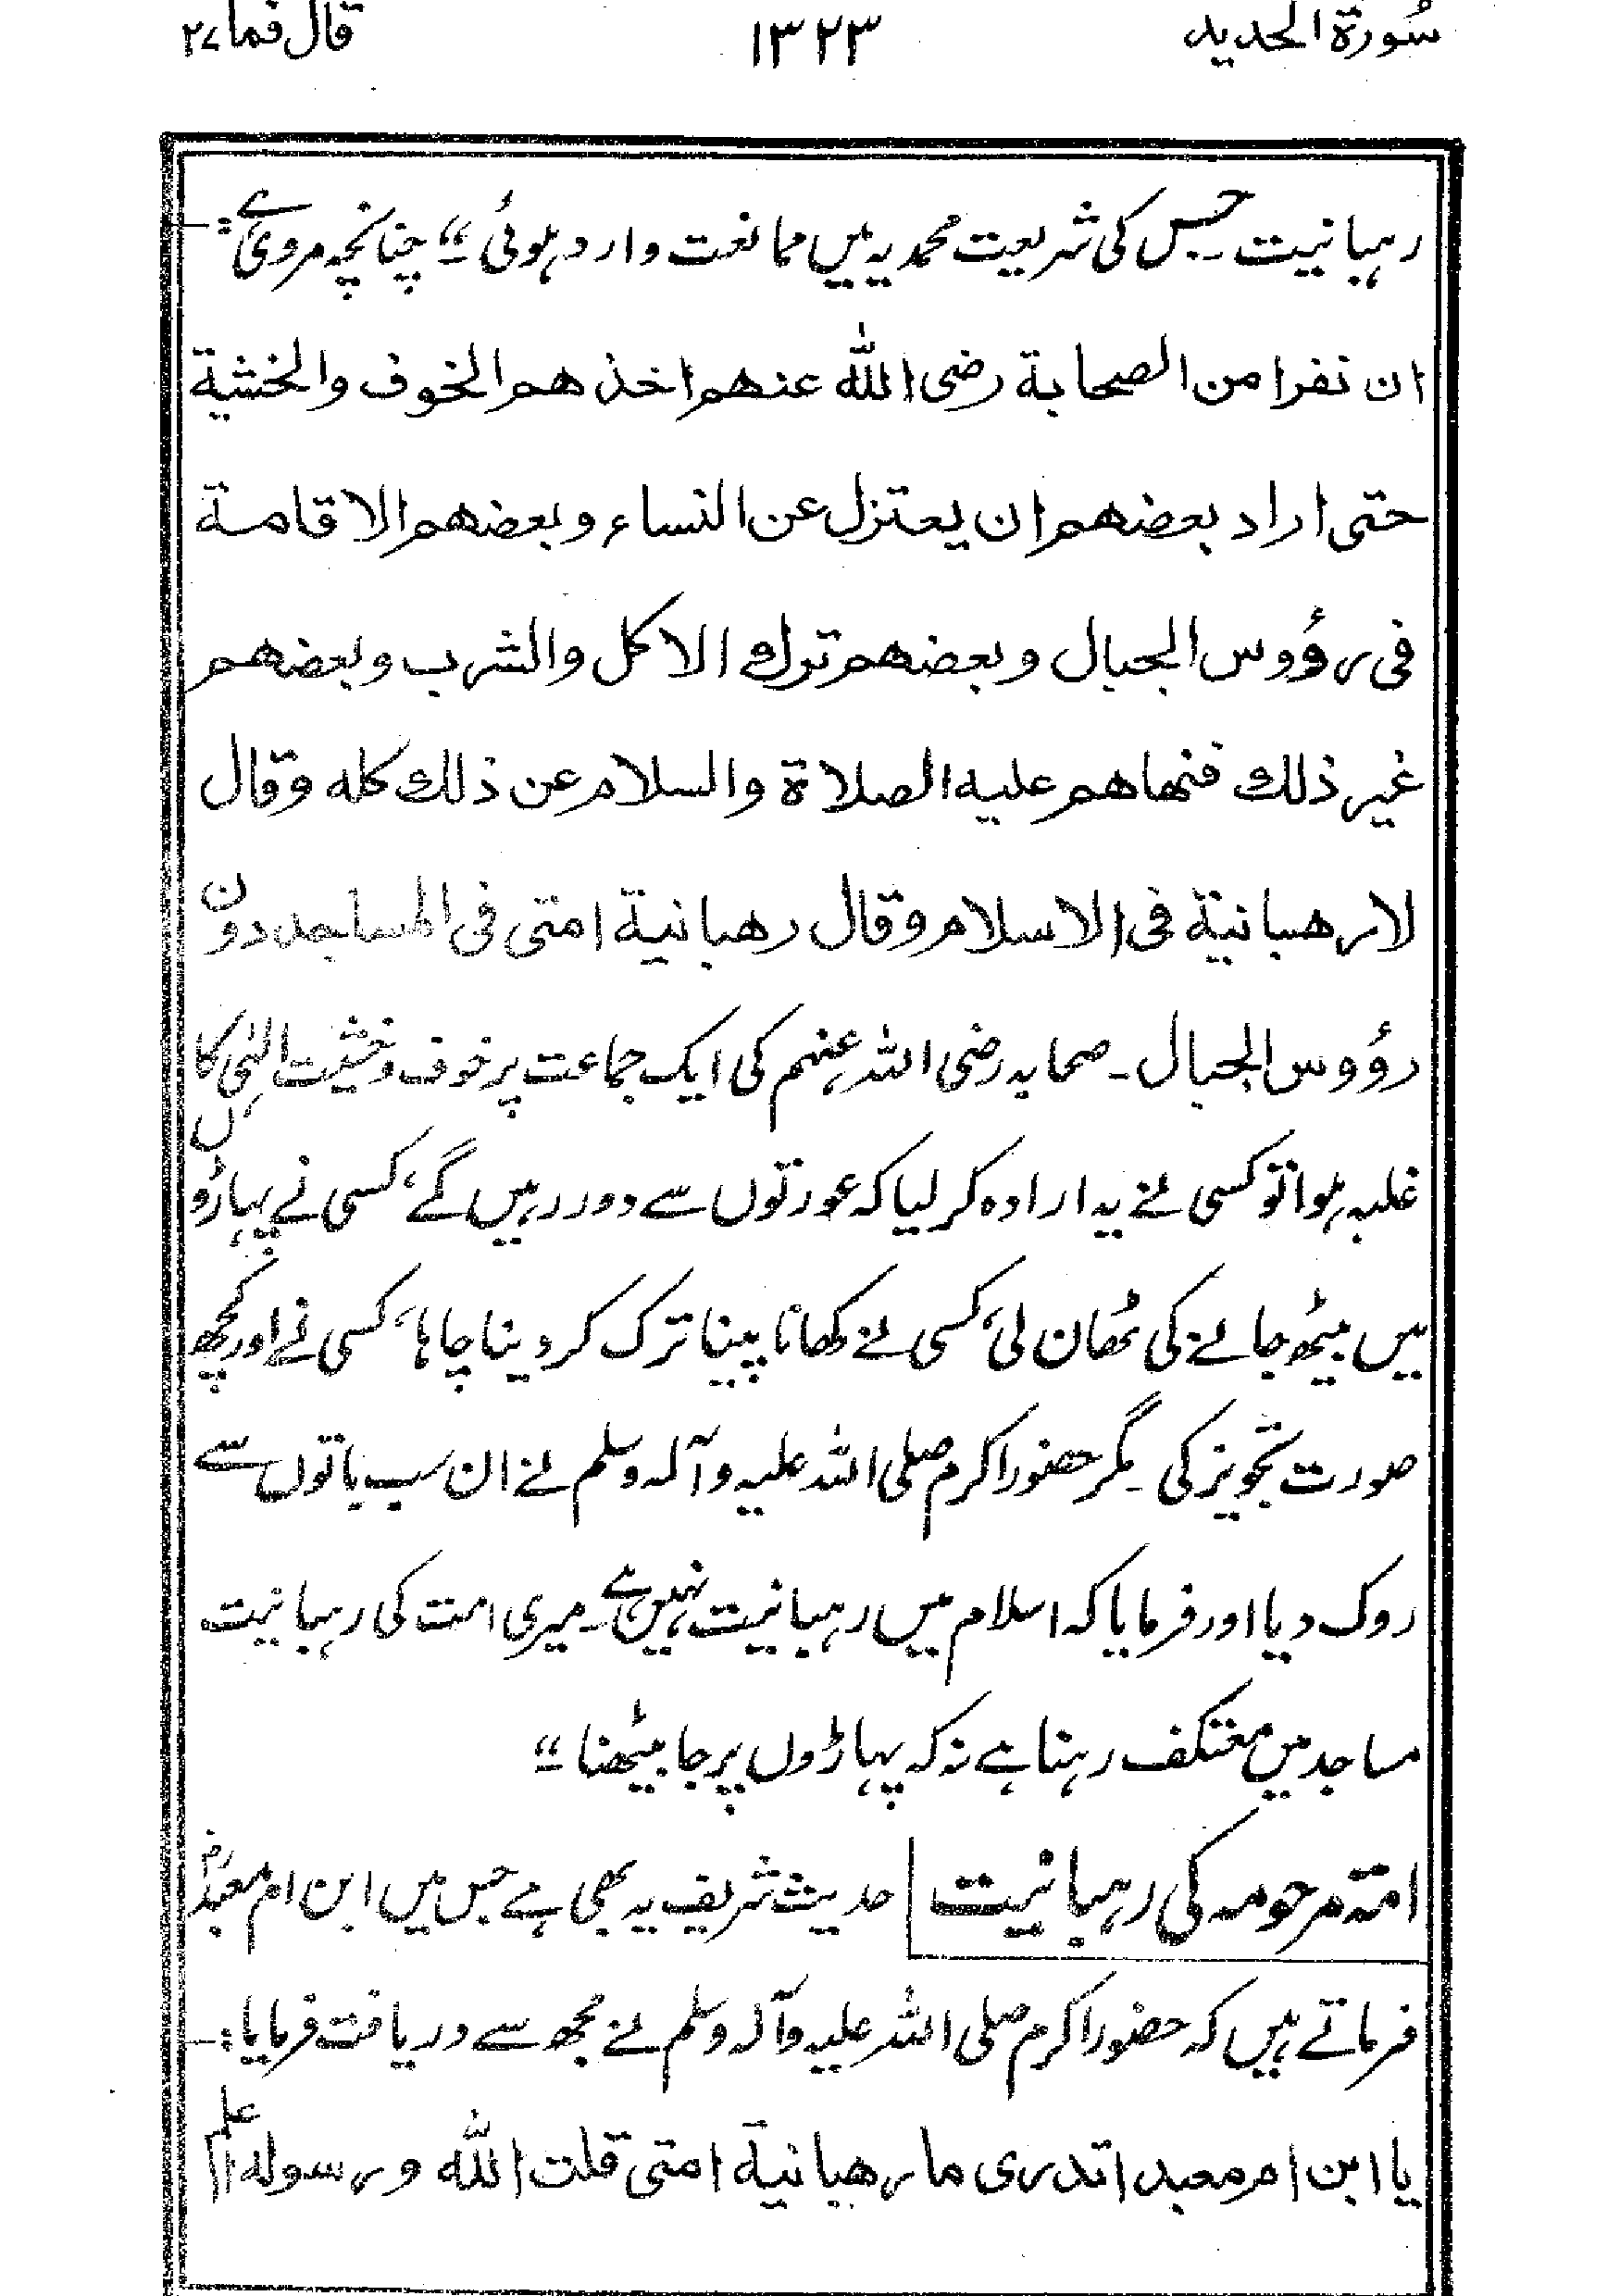 سُورة الحديد
١٣٢٣
قال فما ٢٧
رہبانیت۔ جس کی شریعت محمدیہ میں ممانعت وارد ہوئی“ چنانچہ مروی ہے:-
ان نفرا من الصحابة رضى الله عنهم اخذ هم الخوف والخشية
حتى اراد بعضهم ان يعتزل عن النساء وبعضهم الاقامة
فى رؤوس الجبال وبعضهم ترك الاكل والشرب وبعضهم
غير ذلك فنهاهم عليه الصلاة والسلام عن ذلك كله وقال
لا رهبانية فى الاسلام وقال رهبانية امتى فى المساجد دون
رؤوس الجبال۔ صحابہ رضی اللہ عنہم کی ایک جماعت پر خوف و خشیت الٰہی کا
غلبہ ہوا تو کسی نے یہ ارادہ کر لیا کہ عورتوں سے دور رہیں گے، کسی نے پہاڑوں
میں بیٹھ جانے کی ٹھان لی، کسی نے کھانا پینا ترک کر دینا چاہا، کسی نے اور کچھ
صورت تجویز کی۔ مگر حضور اکرم صلی اللہ علیہ وآلہ وسلم نے ان سب باتوں سے
روک دیا اور فرمایا کہ اسلام میں رہبانیت نہیں ہے۔ میری امت کی رہبانیت
مساجد میں معتکف رہنا ہے نہ کہ پہاڑوں پر جا بیٹھنا“
امۃ مرحومہ کی رہبانیت
حدیث شریف یہ بھی ہے جس میں ابن ام معبدؓ
فرماتے ہیں کہ حضور اکرم صلی اللہ علیہ وآلہ وسلم نے مجھ سے دریافت فرمایا:-
يا ابن ام معبد اتدرى ما رهبانية امتى قلت الله ورسوله اعلم